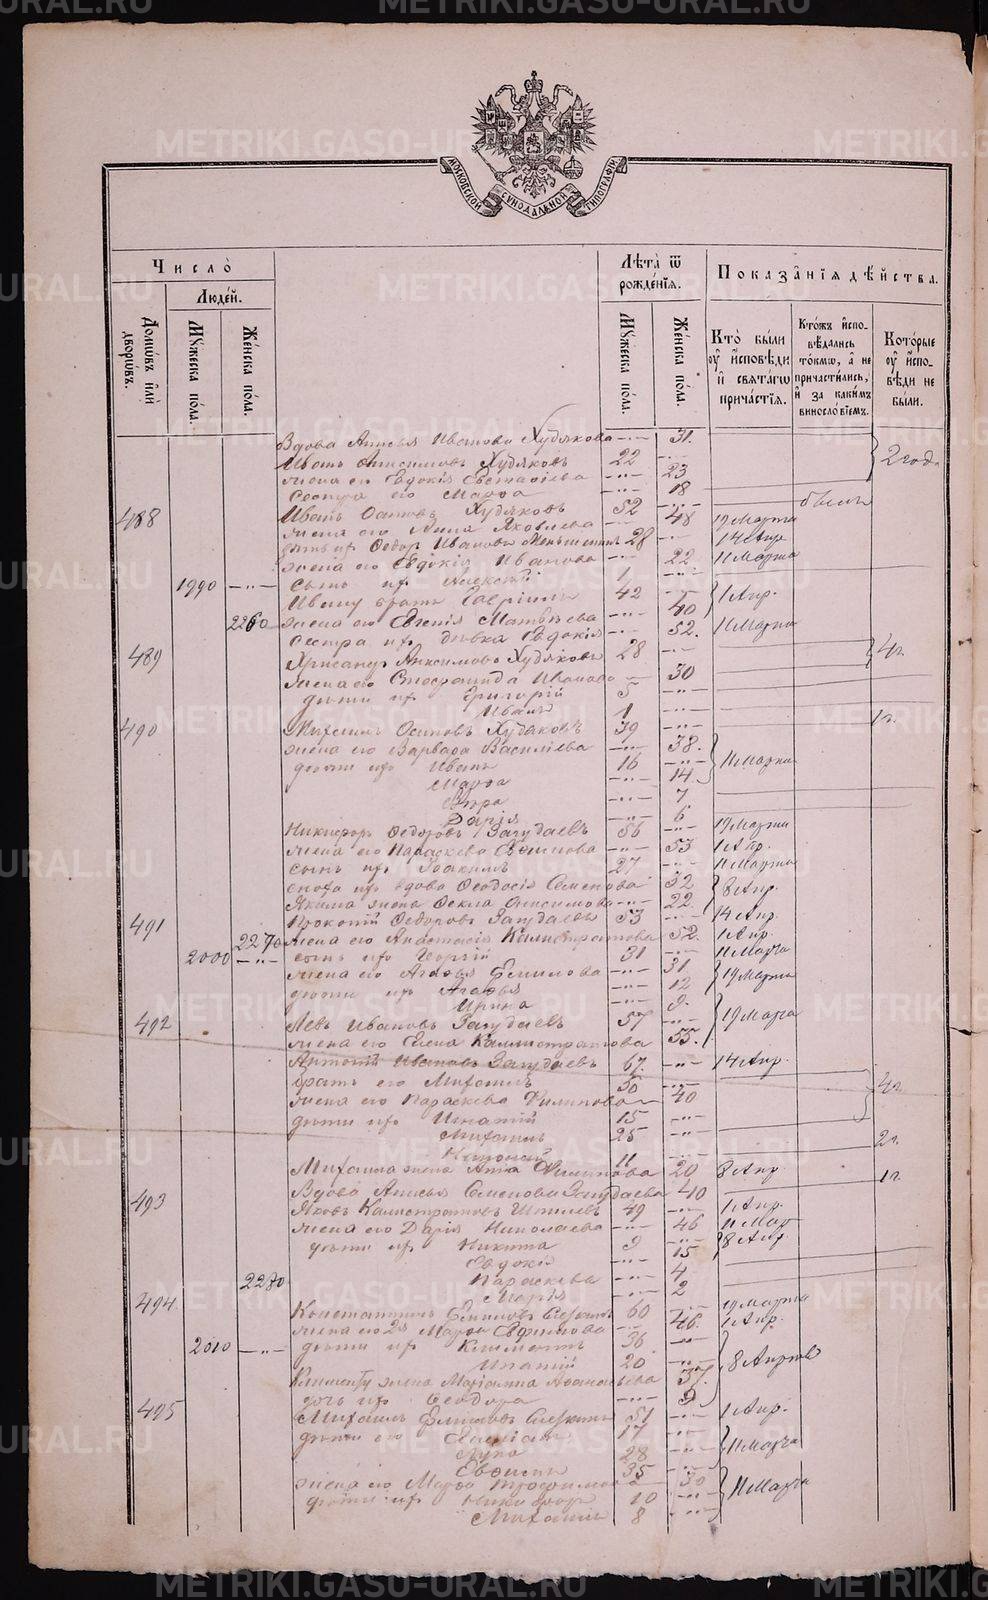 METRIKI.GASO-URAL.RU
МОСКОВСКОЙ СѴНОДАЛЬНОЙ ТИПОГРАФІИ
Число̀
Людей.
Домѡвъ и҆лѝ дворѡвъ.
Мꙋжеска по́ла.
Же́нска по́ла.
Лѣта̀ ѿ рожде́нїѧ.
Мꙋжеска по́ла.
Же́нска по́ла.
Показа́нїѧ дѣ́йства.
Кто̀ бы́ли оу҆ и҆сповѣди и҆ свѧта́гѡ прича́стїѧ.
Кто́жъ и҆спо-вѣдались то́кмѡ, а҆ не причасти́лись, и҆ за каки́мъ винослові́емъ.
Кото́рые оу҆ и҆спо-вѣди не бы́ли.
Вдова Анисья Иванова Худякова -"- 31.
Иванъ Анисимовъ Худяковъ 22 -"- 2 года
жена его Евдокія Евстафіева -"- 23
сестра его Марфа -"- 18
488 Иванъ Осиповъ Худяковъ 52 -"-
жена его Анна Яковлева -"- 48 19 Марта
Ѳедор Ивановъ Меньшенинъ 28 -"- 14 Апр.
жена его Евдокія Иванова -"- 22. 11 Марта
1990 -"- сынъ их Алексѣй 1 -"-
Ивану братъ Гавріилъ 42 -"- 1 Апр.
2260 жена его Евгенія Матвѣева -"- 40
сестра их дѣвка Евдокія -"- 52. 11 Марта
489 Хрисанфъ Анисимовъ Худяковъ 28 -"- 4 г.
жена его Иванова -"- 30
дѣти их Григорій 5 -"-
Иванъ 1 -"-
490 Михаилъ Осиповъ Худяковъ 39 -"- 1 г.
жена его Варвара Василіева -"- 38.
дѣти их Иванъ 16 -"- 11 Марта
Марфа -"- 14
Вѣра -"- 7
Дарія -"- 6
Никифоръ Ѳедоровъ Загудаевъ 56 -"- 19 Марта
жена его Параскева -"- 53 1 Апр.
сынъ их Іоакимъ 27 -"- 11 Марта
сноха их вдова Ѳеодосія Семенова -"- 32 8 Апр.
Якима жена Ѳекла Анисимова -"- 22.
491 Прокопій Ѳедоровъ Загудаевъ 53 -"- 14 Апр.
2270 жена его Анастасія Калистратова -"- 52. 1 Апр.
2000 -"- сынъ их Георгій 31 -"- 11 Марта
жена его Агафья Емилова -"- 31. 19 Марта
дѣти их Агафья -"- 12
Ирина -"- 9.
492 Левъ Ивановъ Загудаевъ 57 -"- 19 Марта
жена его Елена Каллистратова -"- 55.
Антоній Ивановъ Загудаевъ 67. -"- 14 Апр.
братъ его Михаилъ 50 -"-
жена его Параскева Филипова -"- 40 4 г.
дѣти их Игнатій 15 -"-
Михаилъ 25 -"- 2 г.
11 -"-
Михаила жена Анна Филипова 20 8 Апр.
Вдова Анисья Семенова Загудаева 40 1 г.
493 Яковъ Калистратовъ 49 -"- 1 Апр.
жена его Дарія Николаева -"- 46 11 Мар
дѣти их Никита 9 -"- 8 Апр
Евдокія -"- 15
2280 Параскева -"- 4
Марія -"- 2
494 Константинъ 60 -"- 19 Марта
жена его 2я Марфа Ефимова -"- 46. 1 Апр.
2010 -"- дѣти их Климентъ 36 -"-
Ипатій 20 -"- 8 Апрѣля
Клименту жена Маріамна Аѳанасьева -"- 37.
дочь их Ѳеодора -"- 9
495 Михаилъ 51 -"- 1 Апр.
дѣти его 17 -"-
Лука 28 -"- 11 Марта
35 -"-
жена его Марфа Трофимова -"- 30
дѣти их Никифоръ 10 -"- 11 Марта
Михаилъ 8 -"-